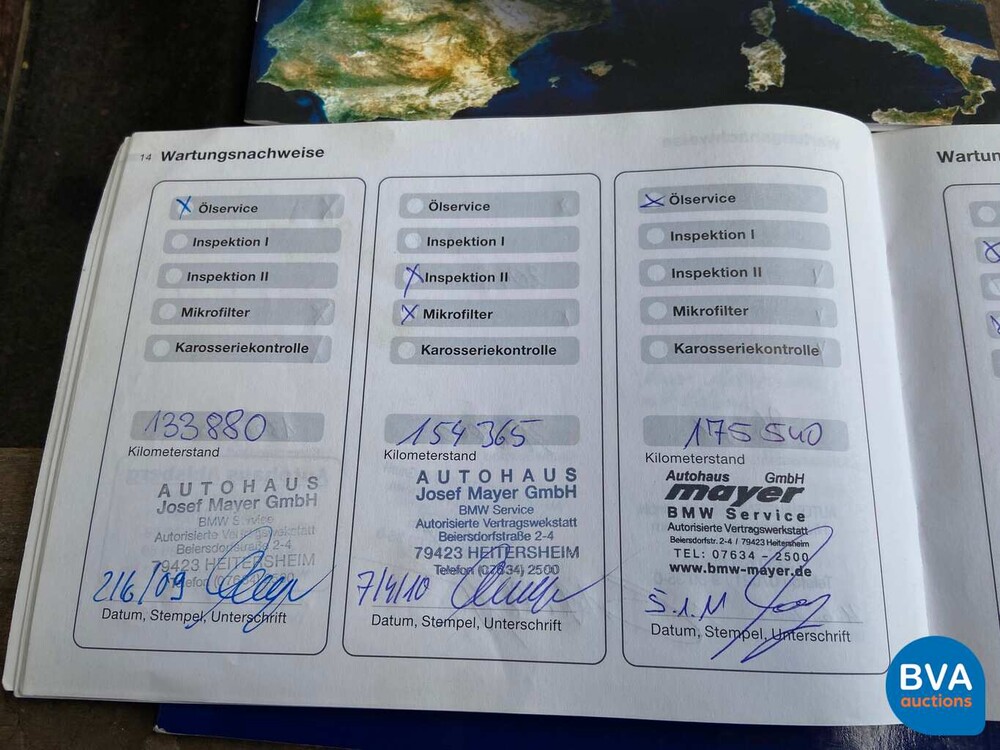 14 Wartungsnachweise
X Ölservice
Inspektion I
Inspektion II
Mikrofilter
Karosseriekontrolle
133880
Kilometerstand
AUTOHAUS
Josef Mayer GmbH
BMW Service
Autorisierte Vertragswekstatt
Beiersdorfstraße 2-4
79423 HEITERSHEIM
Telefon (07634)
2/6/09
Datum, Stempel, Unterschrift
Ölservice
Inspektion I
X Inspektion II
X Mikrofilter
Karosseriekontrolle
154365
Kilometerstand
AUTOHAUS
Josef Mayer GmbH
BMW Service
Autorisierte Vertragswekstatt
Beiersdorfstraße 2-4
79423 HEITERSHEIM
Telefon (07634) 2500
7/4/10
Datum, Stempel, Unterschrift
X Ölservice
Inspektion I
Inspektion II
Mikrofilter
Karosseriekontrolle
175540
Kilometerstand
Autohaus GmbH
mayer
BMW Service
Autorisierte Vertragswerkstatt
Beiersdorfstr. 2-4 / 79423 Heitersheim
TEL: 07634 - 2500
www.bmw-mayer.de
5.1.11
Datum, Stempel, Unterschrift
Wartun
BVA
auctions